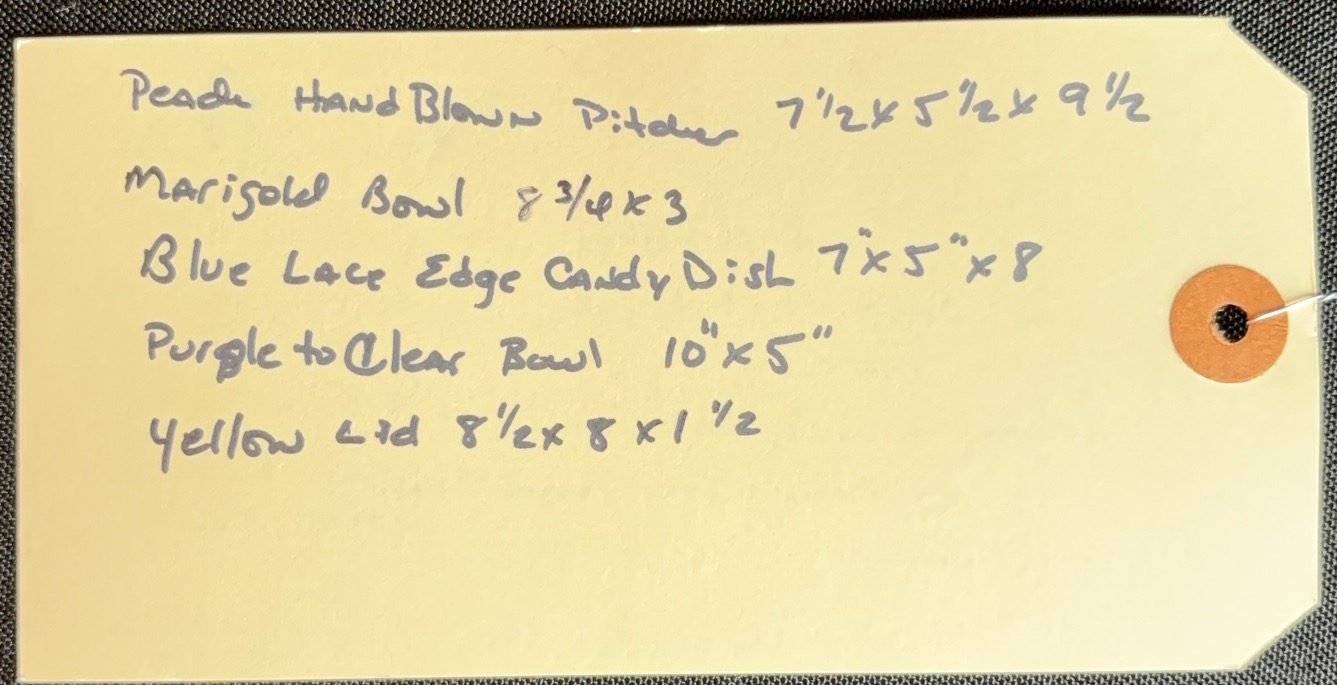 Peach Hand Blown Pitcher 7 1/2 x 5 1/2 x 9 1/2
Marigold Bowl 8 3/4 x 3
Blue Lace Edge Candy Dish 7" x 5" x 8
Purple to Clear Bowl 10" x 5"
Yellow Lid 8 1/2 x 8 x 1 1/2